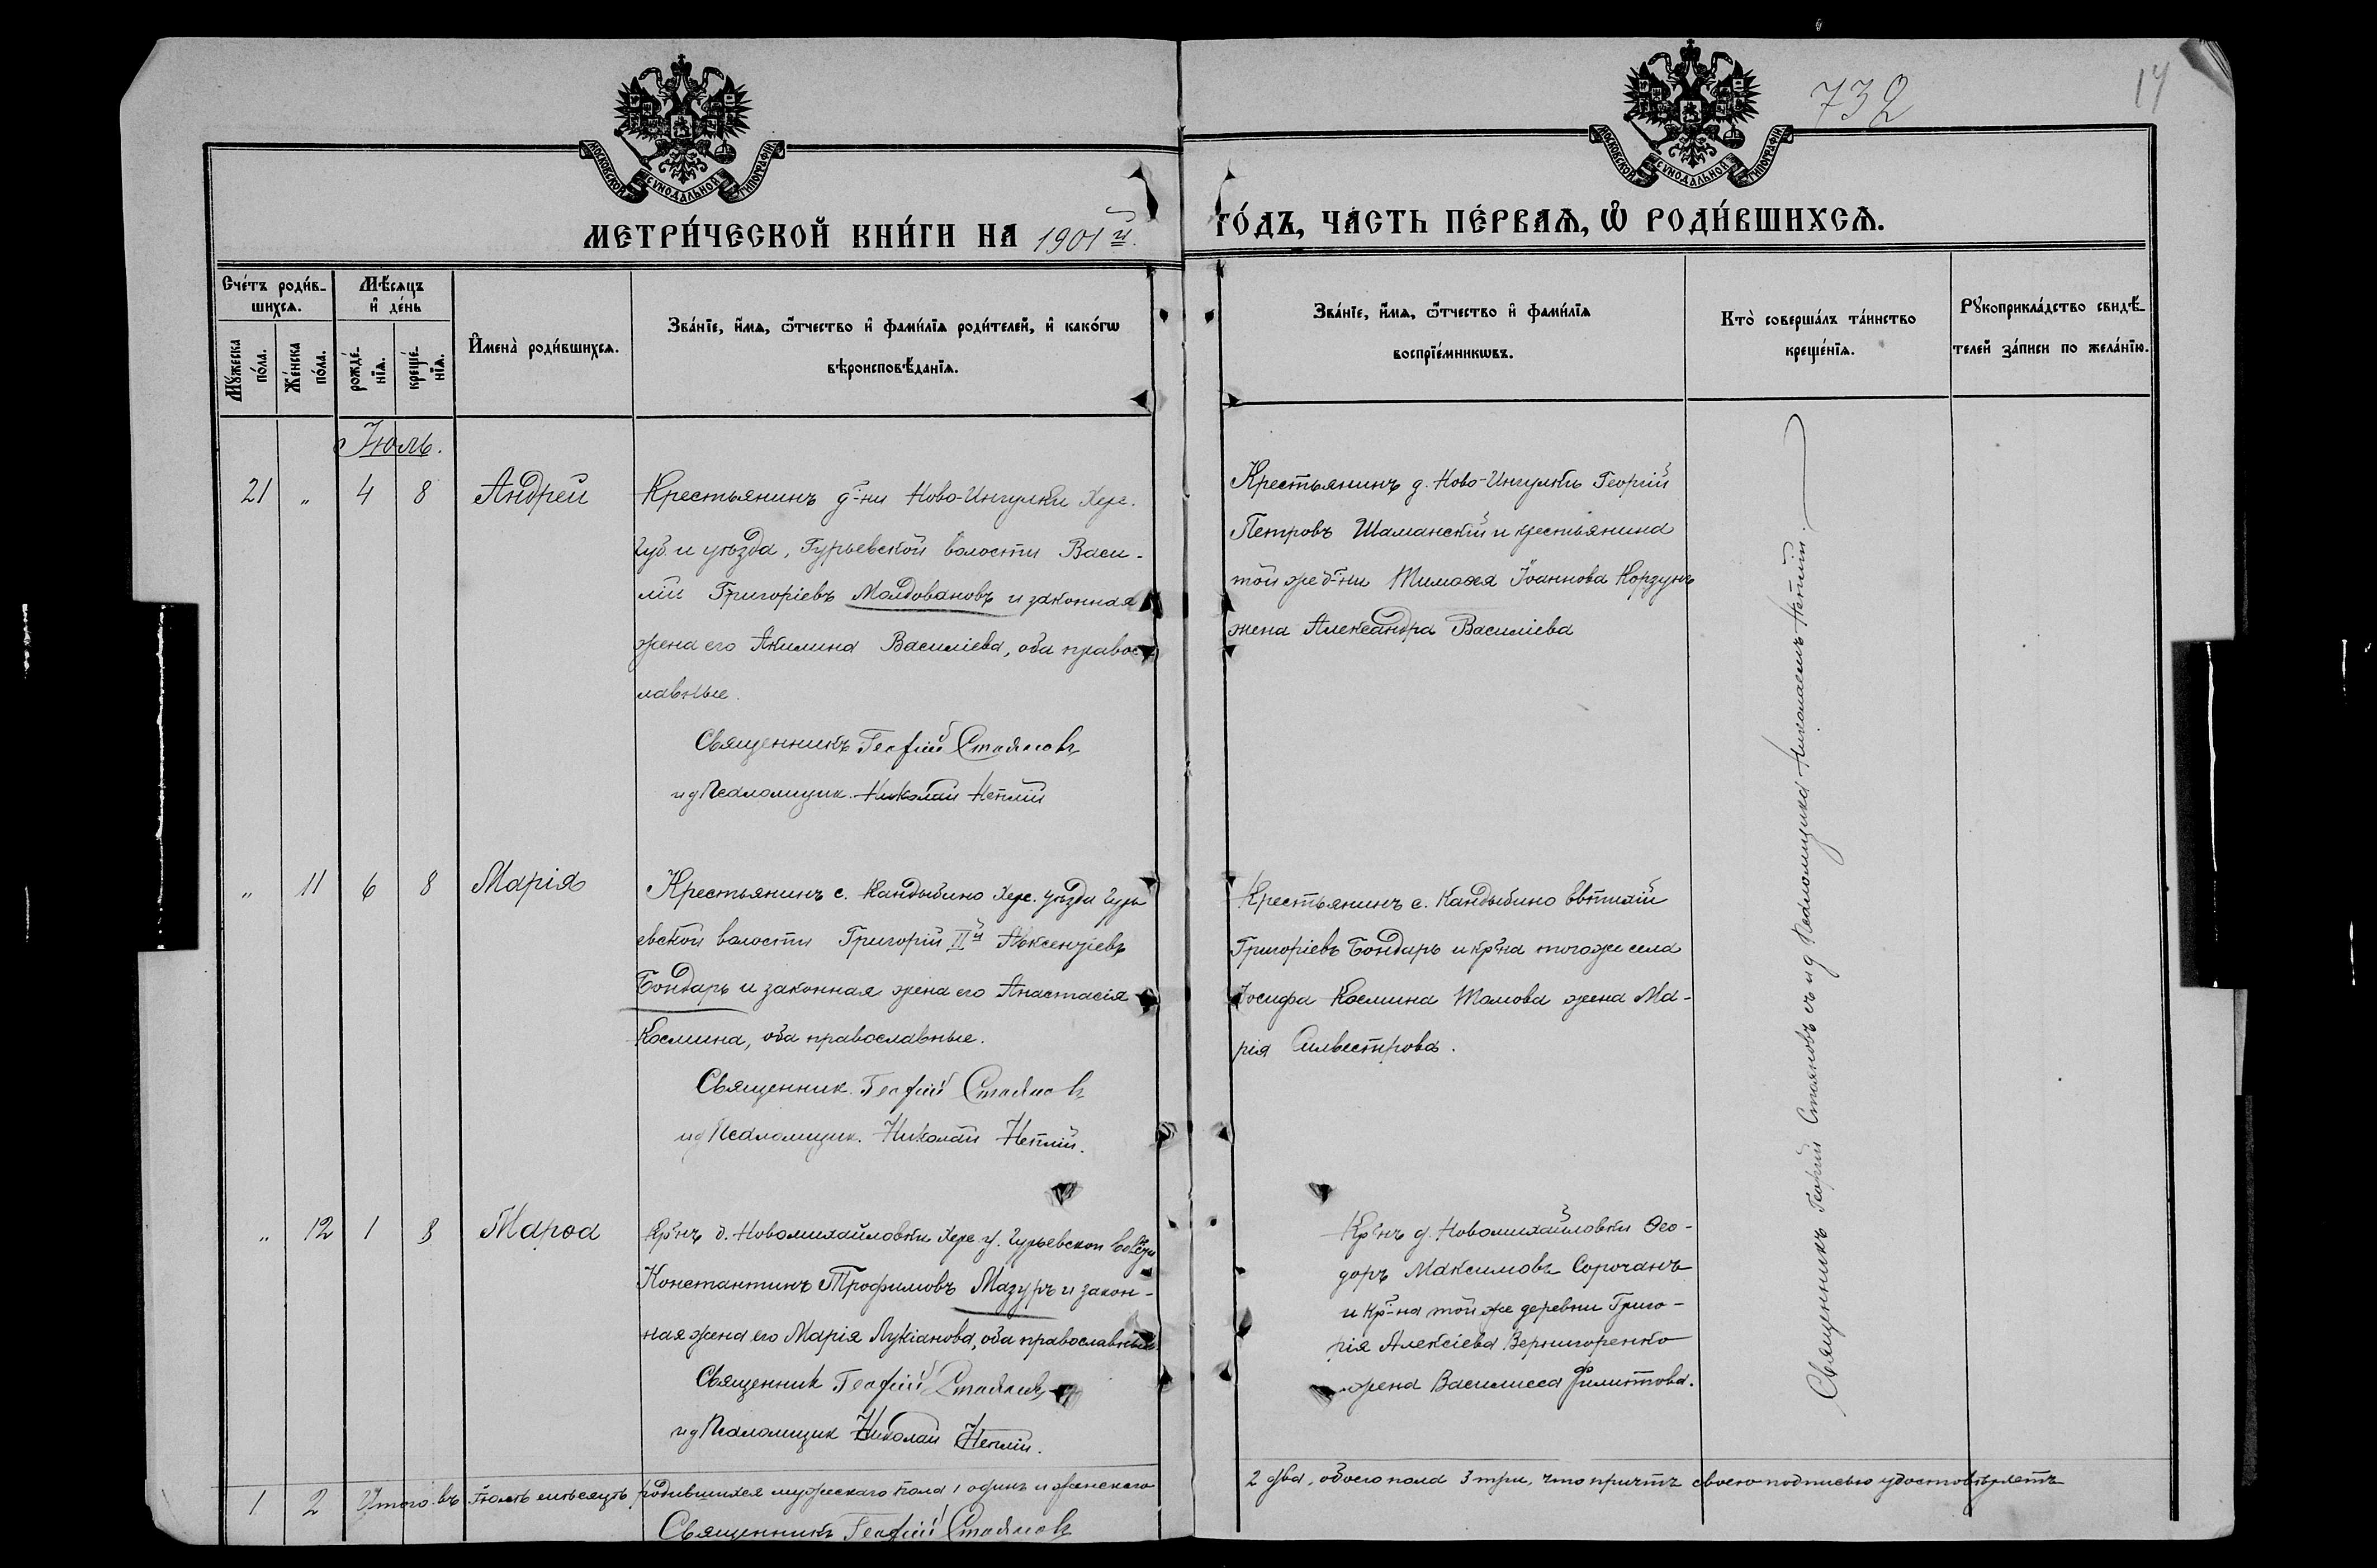 732
14
МОСКОВСКОЙ СѴНОДАЛЬНОЙ ТИПОГРАФІИ
МОСКОВСКОЙ СѴНОДАЛЬНОЙ ТИПОГРАФІИ
МЕТРИ́ЧЕСКОЙ КНИ́ГИ НА 1901 й
ГО́ДЪ, ЧА́СТЬ ПЕ́РВАѦ, Ѡ҆ РОДИ́ВШИХСѦ.
Сче́тъ роди́в-
шихсѧ.
Мꙋ́жеска по́ла.
Же́нска по́ла.
Мѣ́сѧцъ
и҆ де́нь
рожде́-нїѧ.
креще́-нїѧ.
И҆мена̀ роди́вшихсѧ.
Зва́нїе, и҆́мѧ, ѻ҆́тчество и҆ фами́лїѧ роди́телей, и҆ како́гѡ
вѣроисповѣ́данїѧ.
Зва́нїе, и҆́мѧ, ѻ҆́тчество и҆ фами́лїѧ
воспрїе́мникѡвъ.
Кто̀ соверша́лъ та́инство
креще́нїѧ.
Рꙋкоприкла́дство свидѣ́-
телей за́писи по жела́нїю.
Іюль.
21 „ 4 8 Андрей
Крестьянинъ д-ни Ново-Ингулки Херс.
губ. и уѣзда, Гурьевской волости Васи-
лій Григоріевъ Молдовановъ и законная
жена его Акилина Василіева, оба правос-
лавные.
Священникъ Георгій Стояновъ
ид Псаломщик. Николай Нептій
Крестьянинъ д. Ново-Ингулки Георгій
Петровъ Шаманскій и крестьянина
той же д-ни Тимоѳея Іоаннова Корзунъ
жена Александра Василіева
„ 11 6 8 Марія
Крестьянинъ с. Кандыбино Херс. уѣзда Гурь
евской волости Григорій II й Авксентіевъ
Бондарь и законная жена его Анастасія
Космина, оба православные.
Священник. Георгій Стояновъ
ид Псаломщик. Николай Нептій.
Крестьянинъ с. Кандыбино Евтихій
Григоріевъ Бондарь и кр-на того же села
Іосифа Космина Томова жена Ма-
рія Сильвестрова.
„ 12 1 8 Марѳа
Кр-нъ д. Новомихайловки Херс у. Гурьевской вол.
Константинъ Трофимовъ Мазуръ и закон-
ная жена его Марія Лукіанова, оба православные
Священник Георгій Стояновъ
ид Псаломщик Николай Нептій.
Кр-нъ д. Новомихайловки Ѳео-
доръ Максимовъ Сорочанъ
и кр-на той же деревни Григо-
рія Алексіева Вернигоренко
жена Василисса Филиппова.
Священникъ Георгій Стояновъ съ ид Псаломщика Николаемъ Нептій.
1 2 Итого въ Іюлѣ мѣсяцѣ родившихся мужескаго пола 1 одинъ и женскаго
2 два, обоего пола 3 три, что причтъ своею подписью удостовѣряетъ
Священникъ Георгій Стояновъ